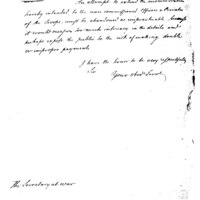 An attempt to extend the
hereby intended to the non commissioned Officers & Privates
of the Troops, must be abandoned as impracticable
it would occasion too much intricacy in the details and
perhaps expose the public to the risk of making double
or improper payments
I have the honor to be very respectfully
Sir
Your Obed Servt
The Secretary at War